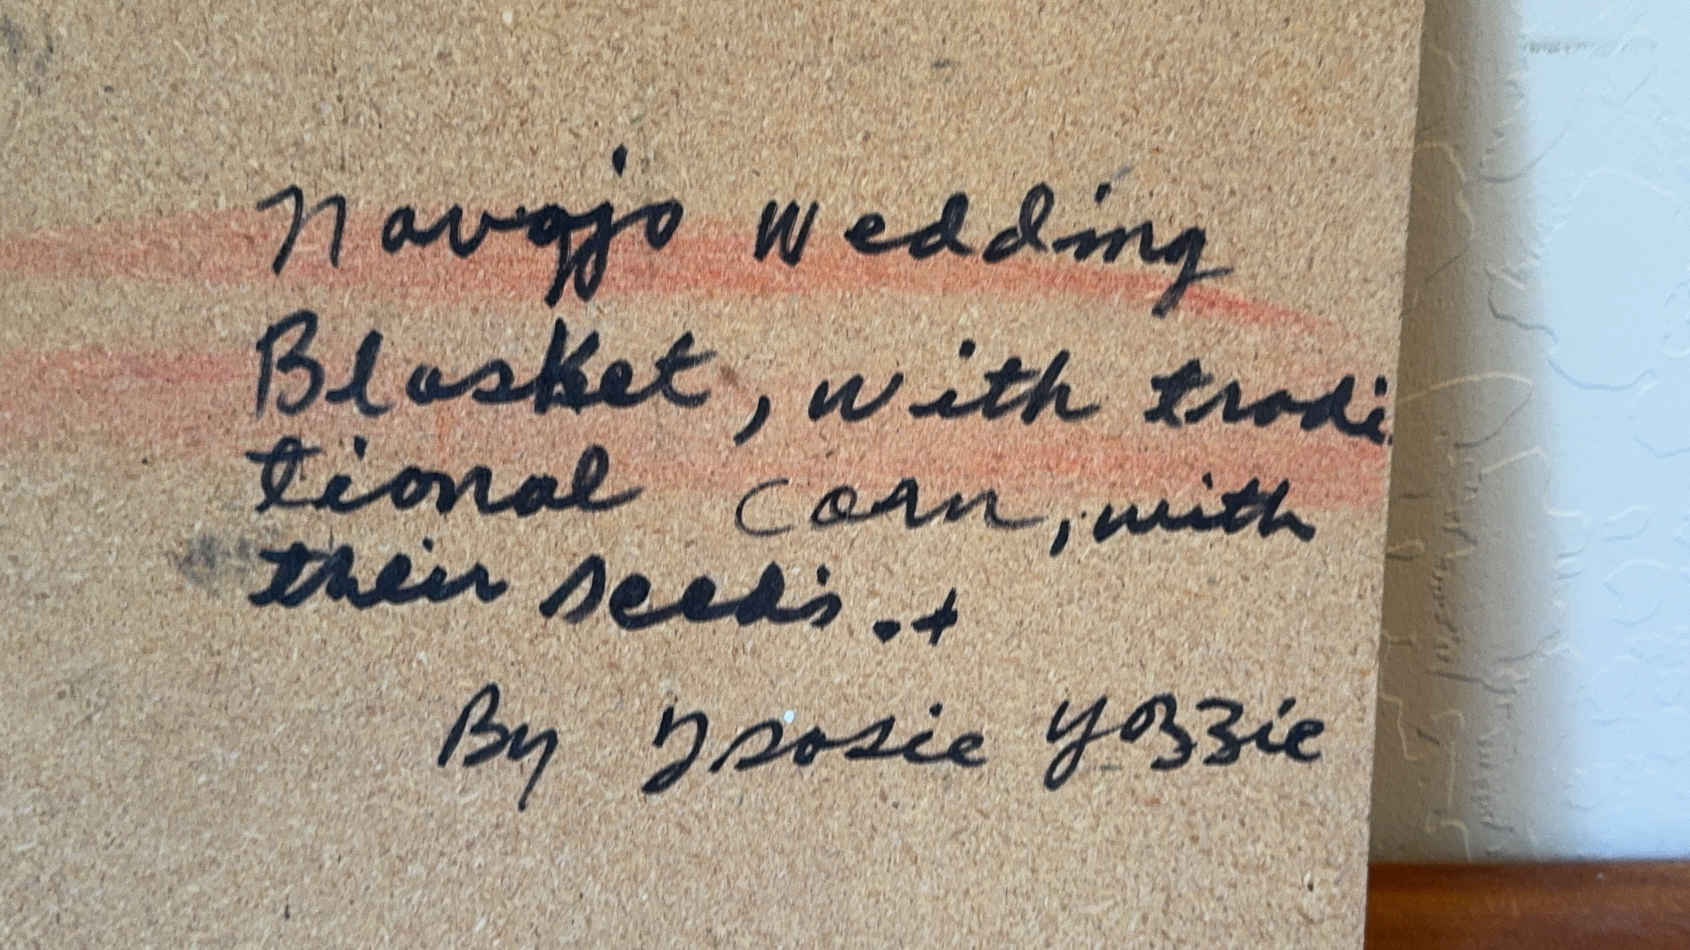 Navajo Wedding
Blasket, with tradi
tional corn, with
their seeds.+
By Tsosie Yozzie